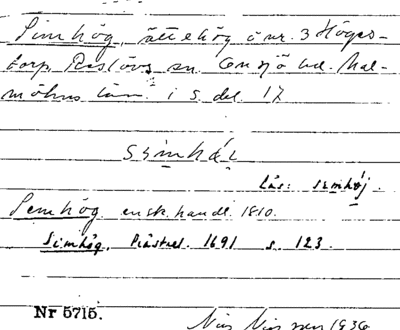 Simhög, ättehög å nr. 3 Högs-
torp, Reslövs sn Onsjö hd. Mal-
möhus län. i S. del. 17
simhǫ́i
Läs: simhǫj.
Semhög ensk. handl. 1810.
Simhög, Präsrel. 1691 s. 123.
Nr 5715.
1936